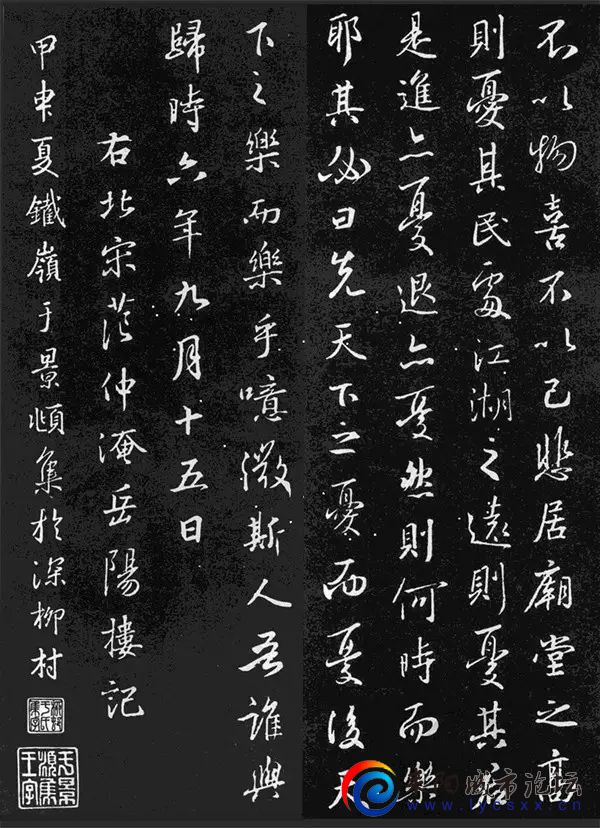 不以物喜不以己悲居廟堂之高
則憂其民處江湖之遠則憂其君
是進亦憂退亦憂然則何時而樂
耶其必曰先天下之憂而憂後天
下之樂而樂乎噫微斯人吾誰與
歸時六年九月十五日
右北宋范仲淹岳陽樓記
甲申夏鐵嶺于景頫集於深柳村
于景頫集王字
阳城市论坛
www.lycsxx.cn